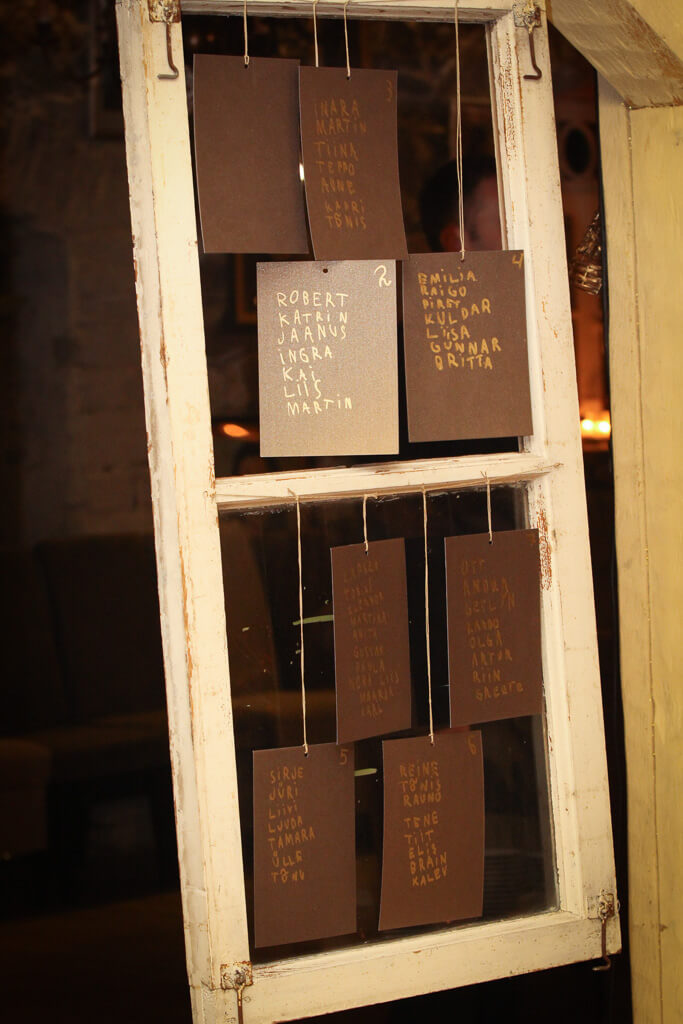 3
INARA
MARTIN
TIINA
TEPPO
ANNE
KAARI
TÕNIS
2
ROBERT
KATRIN
JAANUS
INGRA
KAI
LIIS
MARTIN
4
EMILIA
RAIGO
PIRET
KULDAR
LIISA
GUNNAR
BRITTA
MARTINA
ANITA
GUNNAR
PAULA
KARL
OTT
ANDRA
GETLIN
LANDO
OLGA
ARTUR
RIIN
GREETE
5
SIRJE
JÜRI
LIIVI
LJUDA
TAMARA
ÜLLE
TÕNU
6
REINE
TÕNIS
RAUNO
TENE
TIIT
ELIS
BRAIN
KALEV